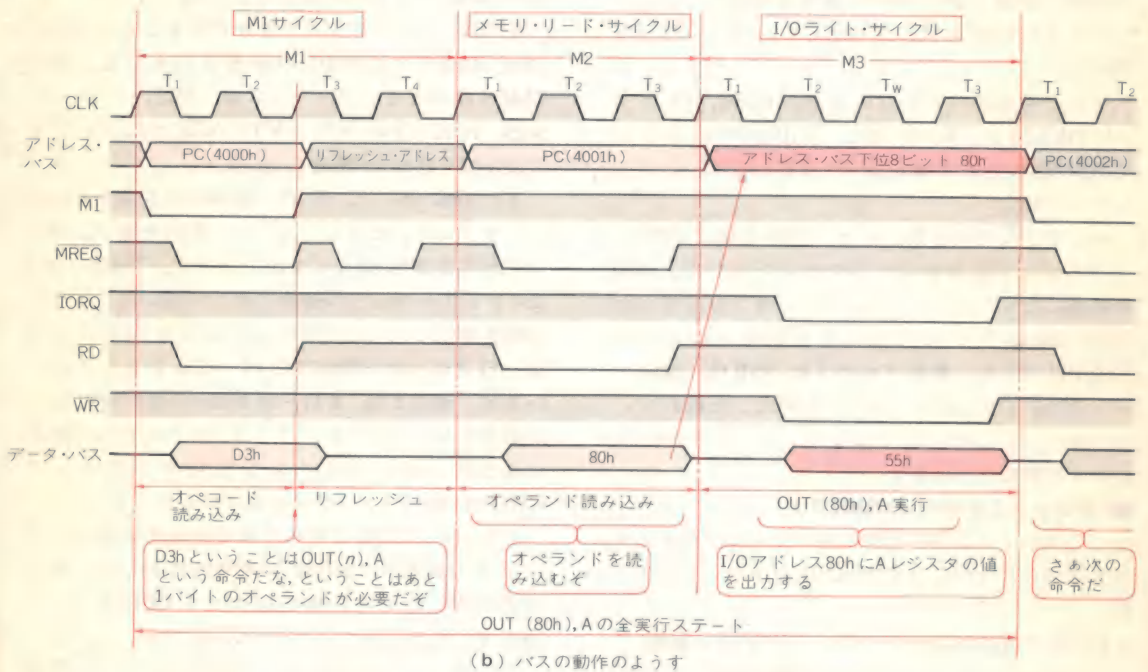 M1サイクル メモリ・リード・サイクル I/Oライト・サイクル
M1 M2 M3
T1 T2 T3 T4 T1 T2 T3 T1 T2 TW T3 T1 T2
CLK
アドレス・バス
PC(4000h) リフレッシュ・アドレス PC(4001h) アドレス・バス下位8ビット 80h PC(4002h)
M1
MREQ
IORQ
RD
WR
データ・バス D3h 80h 55h
オペコード
読み込み
リフレッシュ
オペランド読み込み
OUT (80h), A 実行
D3hということはOUT(n), A
という命令だな, ということはあと
1バイトのオペランドが必要だぞ
オペランドを読
み込むぞ
I/Oアドレス80hにAレジスタの値
を出力する
さぁ次の
命令だ
OUT (80h), Aの全実行ステート
(b) バスの動作のようす